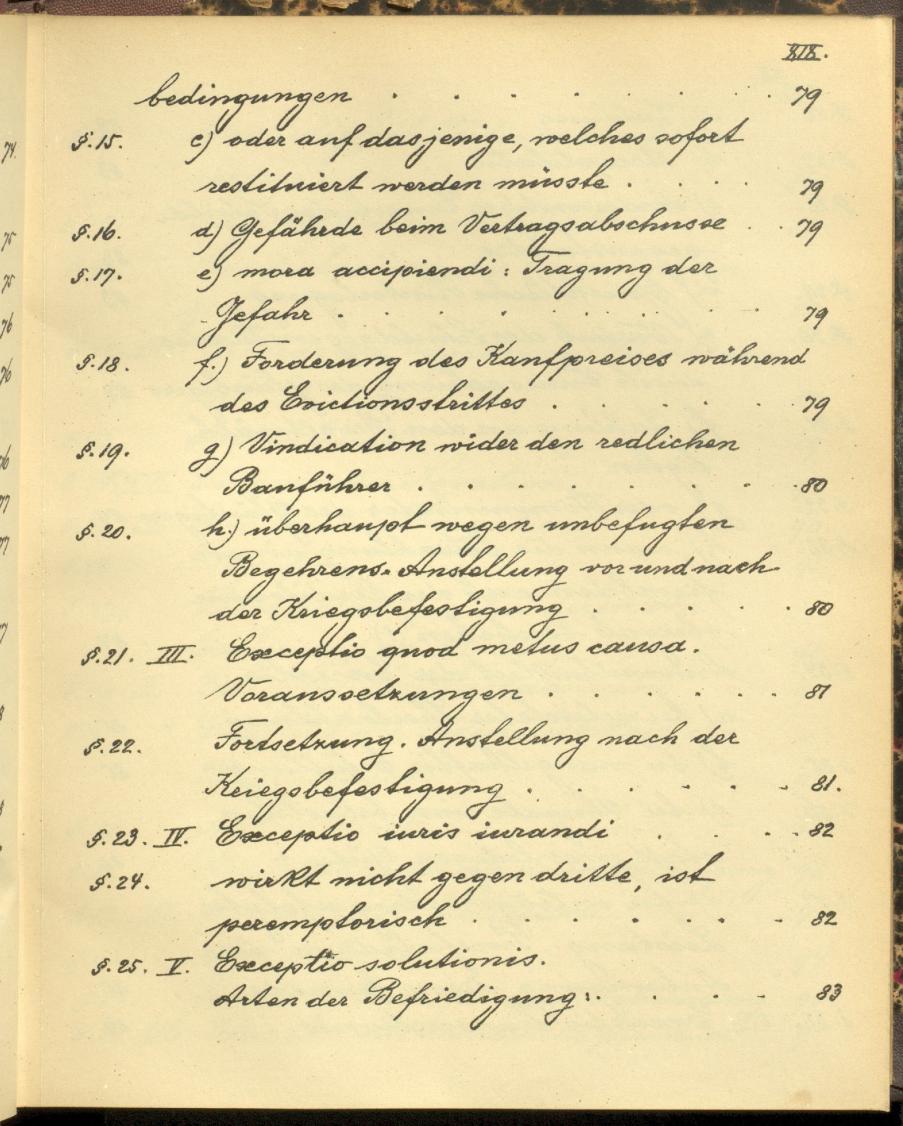 XIX.
bedingungen . . . . . . . . . 79
§.15. c) oder auf dasjenige, welches sofort
restituiert werden müsste . . . . 79
§.16. d) Gefährde beim Vertragsabschusse . . 79
§.17. e) mora accipiendi: Tragung der
Gefahr . . . . . . . . . 79
§.18. f.) Forderung des Kaufpreises während
des Evictionsstrittes . . . . . . 79
§.19. g) Vindication wider den redlichen
Bauführer . . . . . . . . 80
§.20. h.) überhaupt wegen unbefugten
Begehrens-Anstellung vor und nach
der Kriegsbefestigung . . . . . 80
§.21. III. Exceptio quod metus causa.
Voraussetzungen . . . . . . 81
§.22. Fortsetzung. Anstellung nach der
Kriegsbefestigung . . . . . . 81.
§.23. IV. Exceptio iuris iurandi . . . . 82
§.24. wirkt nicht gegen dritte, ist
peremptorisch . . . . . . . 82
§.25. V. Exceptio solutionis.
Arten der Befriedigung: . . . . 83